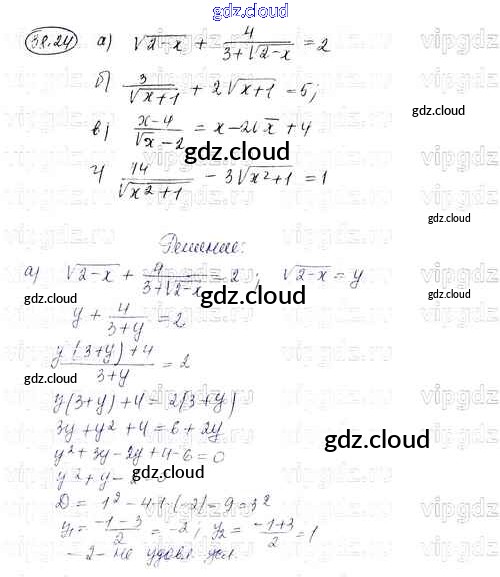 gdz.cloud
38.24 а) √2-x + 4/(3+√2-x) = 2
gdz.cloud
б) 3/√x+1 + 2√x+1 = 5;
в) x-4/(√x-2) = x-2√x+4
gdz.cloud
г) 14/√x²+1 - 3√x²+1 = 1
gdz.cloud
Решение:
а) √2-x + 4/(3+√2-x) = 2; √2-x = y
gdz.cloud
gdz.cloud
gdz.cloud
y + 4/(3+y) = 2
y(3+y)+4/(3+y) = 2
gdz.cloud
y(3+y)+4=2(3+y)
3y+y²+4=6+2y
gdz.cloud
y²+3y-2y+4-6=0
y²+y-2=0
gdz.cloud
D = 1²-4·1·(-2)=9=3²
y₁ = -1-3/2 = -2; y₂ = -1+3/2 = 1
-2- не удовл усл.
gdz.cloud
vipgdz.ru